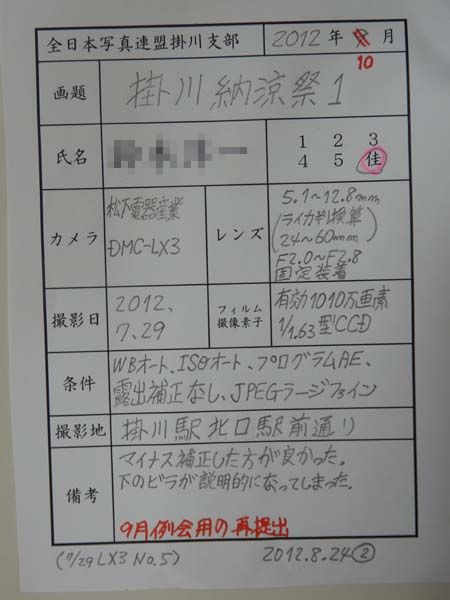 全日本写真連盟掛川支部 2012年9月
10
画題 掛川納涼祭1
氏名 1 2 3
4 5 佳
カメラ 松下電器産業
DMC-LX3
レンズ 5.1~12.8mm
(ライカ判換算
24~60mm)
F2.0~F2.8
固定装着
撮影日 2012.
7.29
フィルム
撮像素子
有効1010万画素
1/1.63型CCD
条件 WBオート、ISOオート、プログラムAE、
露出補正なし、JPEGラージファイン
撮影地 掛川駅北口駅前通り
備考 マイナス補正した方が良かった。
下のビラが説明的になってしまった。
9月例会用の再提出
(7/29 LX3 No.5) 2012.8.24②